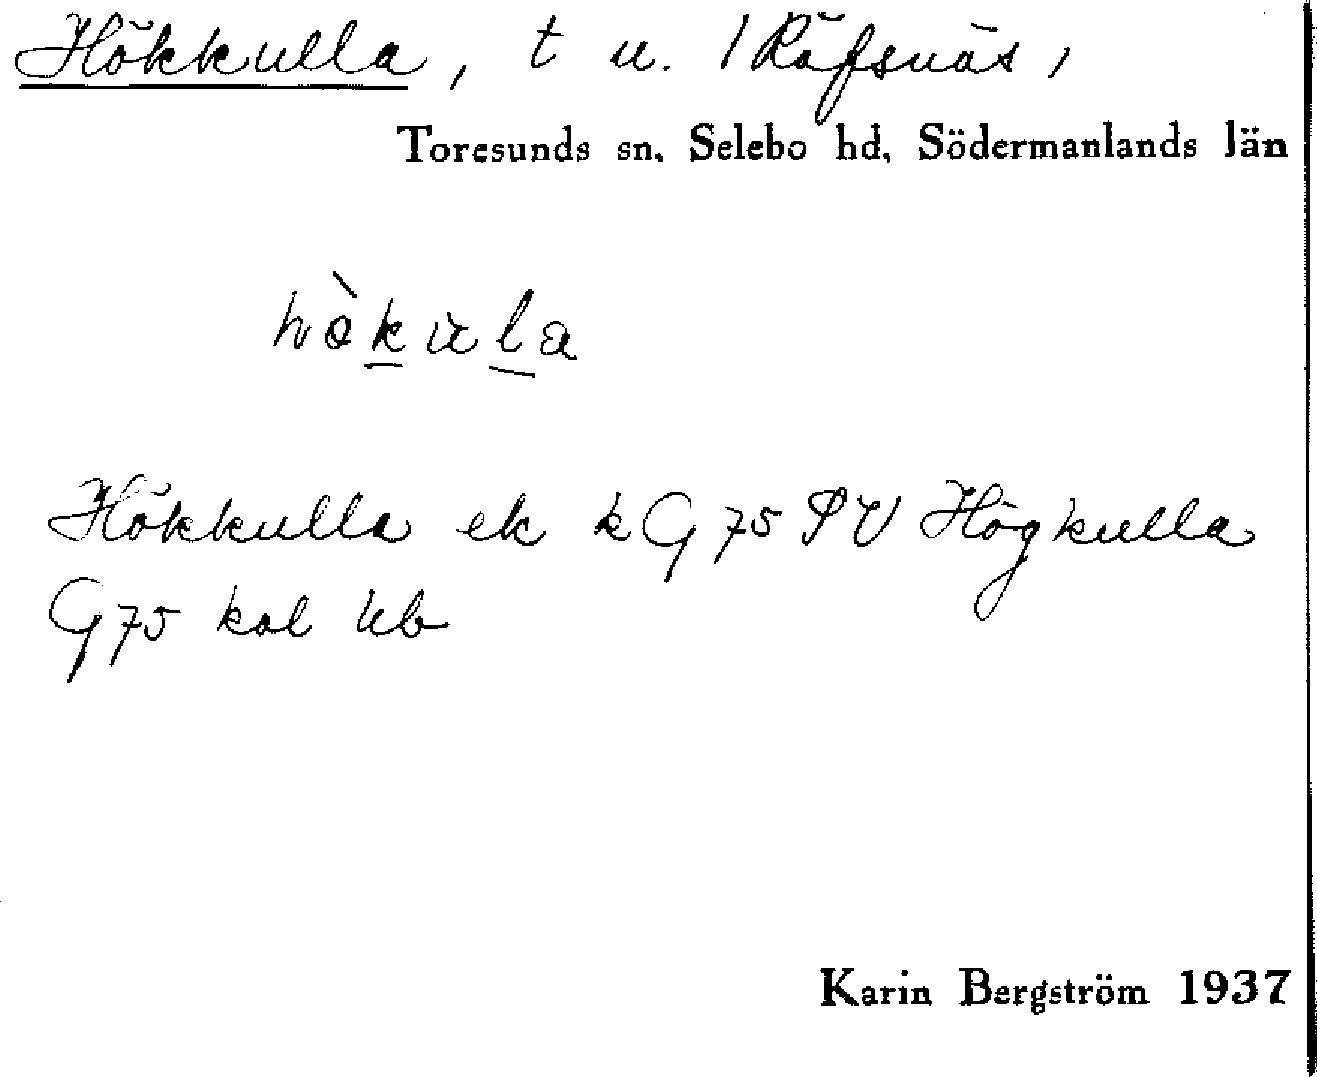 Hökkulla, t u. /Räfsnäs,
Toresunds sn, Selebo hd, Södermanlands län
hökula
Hökkulla ek k G 75 PU Högkulla
G 75 kol hb
Karin Bergström 1937